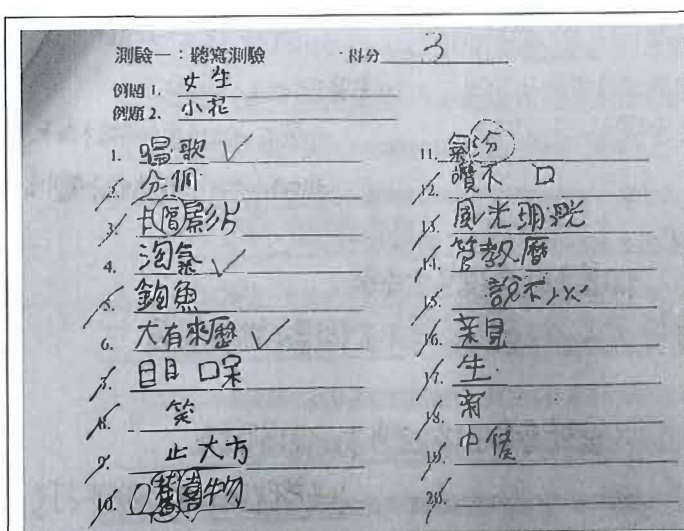 測驗一：聽寫測驗 得分 3
例題 1. 女生
例題 2. 小花
1. 唱歌 ✓
2. 分
3. 卡 影片
4. 淘氣 ✓
5. 釣魚
6. 大有來歷 ✓
7. 目目 口呆
8. 笑
9. 止大方
10. 舊 物
11. 氣汾
12. 讚不 口
13. 風光明
14. 管教
15. 說不以
16. 亲見
17. 生
18. 亲
19. 巾
20.